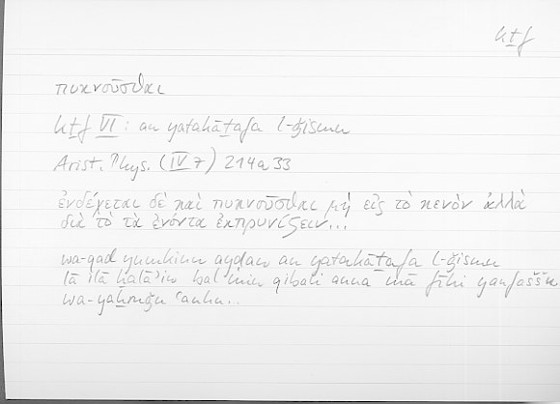 kṯf
πυκνοῦσθαι
kṯf VI : an yatakāṯafa l-ǧismu
Arist. Phys. (IV 7) 214a33
ἐνδέχεται δὲ καὶ πυκνοῦσθαι μὴ εἰς τὸ κενὸν ἀλλὰ
διὰ τὸ τὰ ἐνόντα ἐκπυρηνίζειν...
wa-qad yumkinu ayḍan an yatakāṯafa l-ǧismu
lā ilā ḫalāʾin bal min qibali anna mā fīhi yanfaššu
wa-yaḫruǧu ʿanhu...